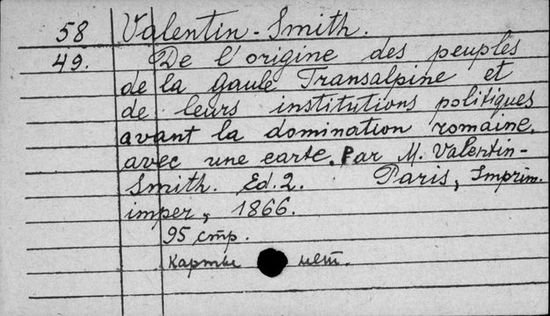 58 Valentin-Smith.
49. De l'origine des peuples
de la gaule Transalpine et
de leurs institutions politiques
avant la domination romaine.
avec une carte. Par M. Valentin-
Smith. Ed. 2. Paris, Imprim.
imper, 1866.
95 стр.
карты нет.